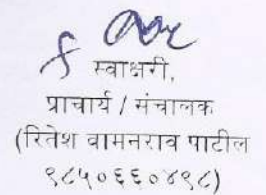 स्वाक्षरी,
प्राचार्य / संचालक
(रितेश वामनराव पाटील
९८५०६६०४९८)